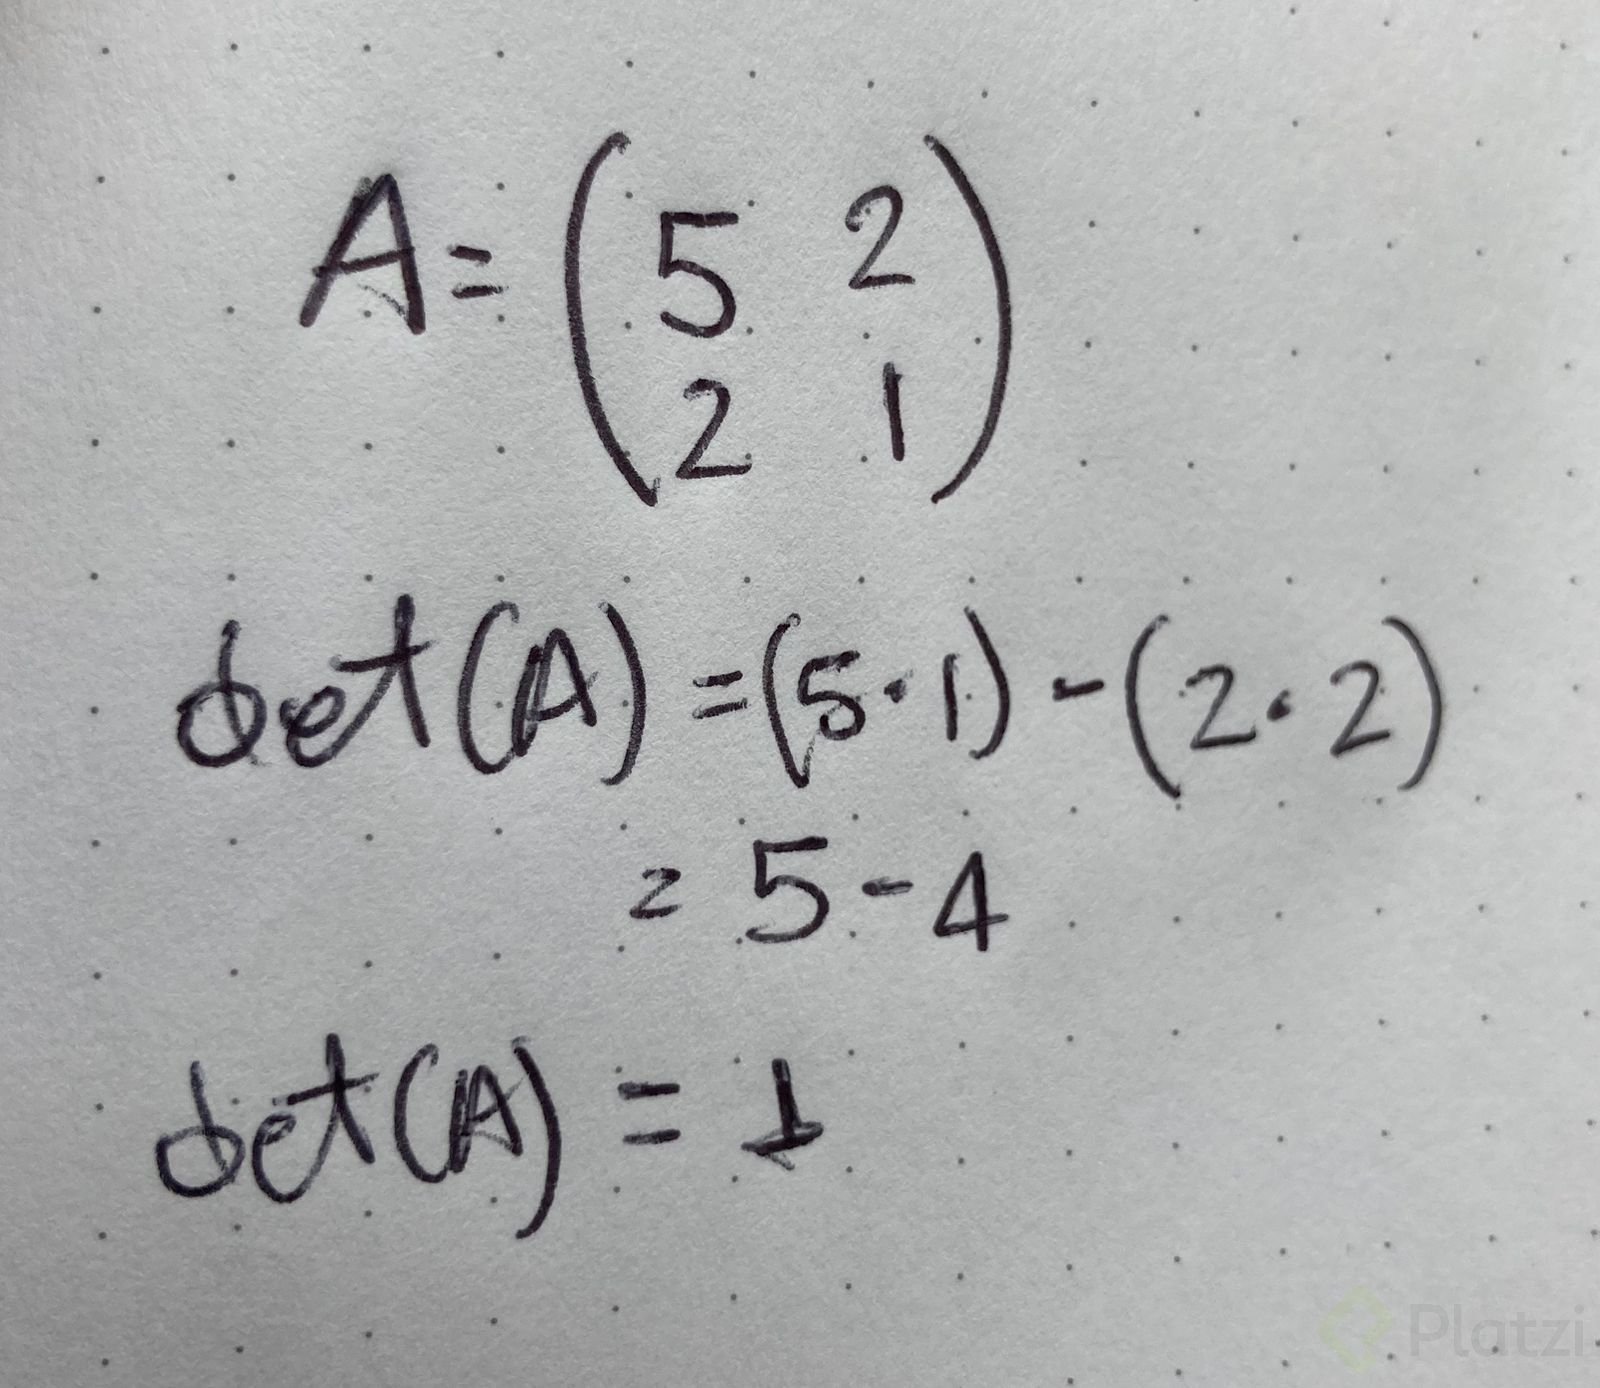 A = ( 5 2
2 1 )
det(A) = (5·1) - (2·2)
= 5 - 4
det(A) = 1
Platzi